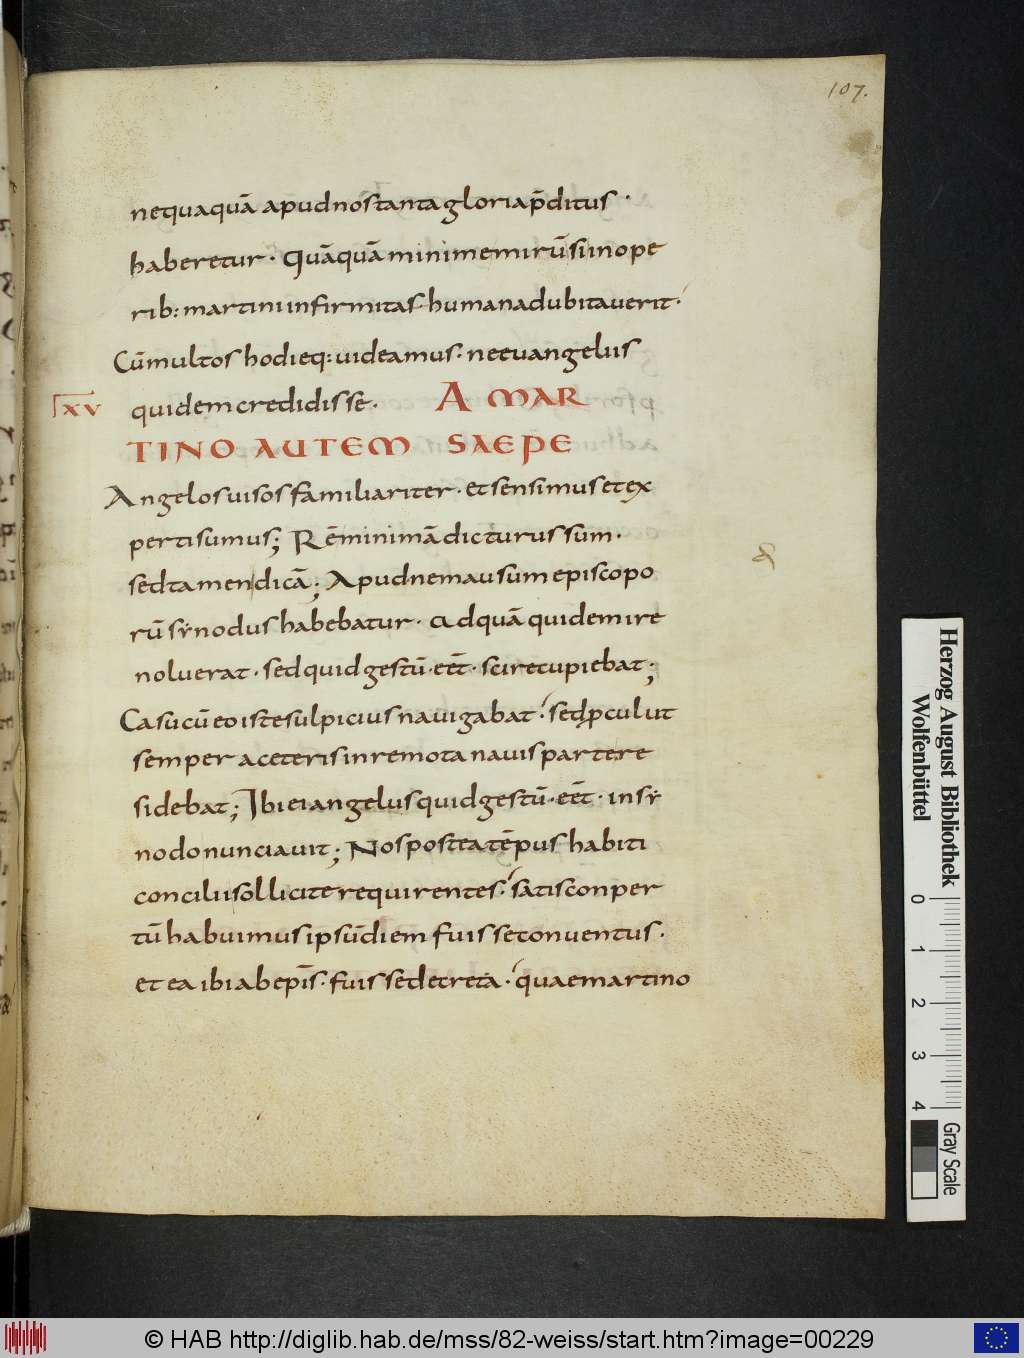 107.
nequaquā apud nos tanta gloria p̄ditus ·
haberetur · Quāquā minime mirū si in ope
rib: martini infirmitas humana dubitaverit ·
Cū multos hodieq: uideamus · nec evangeliis
quidem credidisse · A MAR
XV
TINO AUTEM SAEPE
Angelos uisos familiariter · et sensimus et ex
perti sumus; Rē minimā dicturus sum ·
sed tamen dicā; Apud nemausum episcopo
rū sẏnodus habebatur · ad quā quidem ire
noluerat · sed quid gestū · eēt · scire cupiebat;
Casu cū eo iste sulpicius nauigabat · sed ꝓcul ut
semper a ceteris in remota nauis parte re
sidebat; Ibi ei angelus quid gestū · eēt · in sẏ
nodo nunciauit; Nos postea tēpus habiti
concilii sollicite requirentes · satis conper
tū habuimus ipsū diem fuisse conuentus ·
et ea ibi ab epīs · fuisse decreta · quae martino
&
Herzog August Bibliothek
Wolfenbüttel
0 1 2 3 4
Gray Scale
© HAB http://diglib.hab.de/mss/82-weiss/start.htm?image=00229